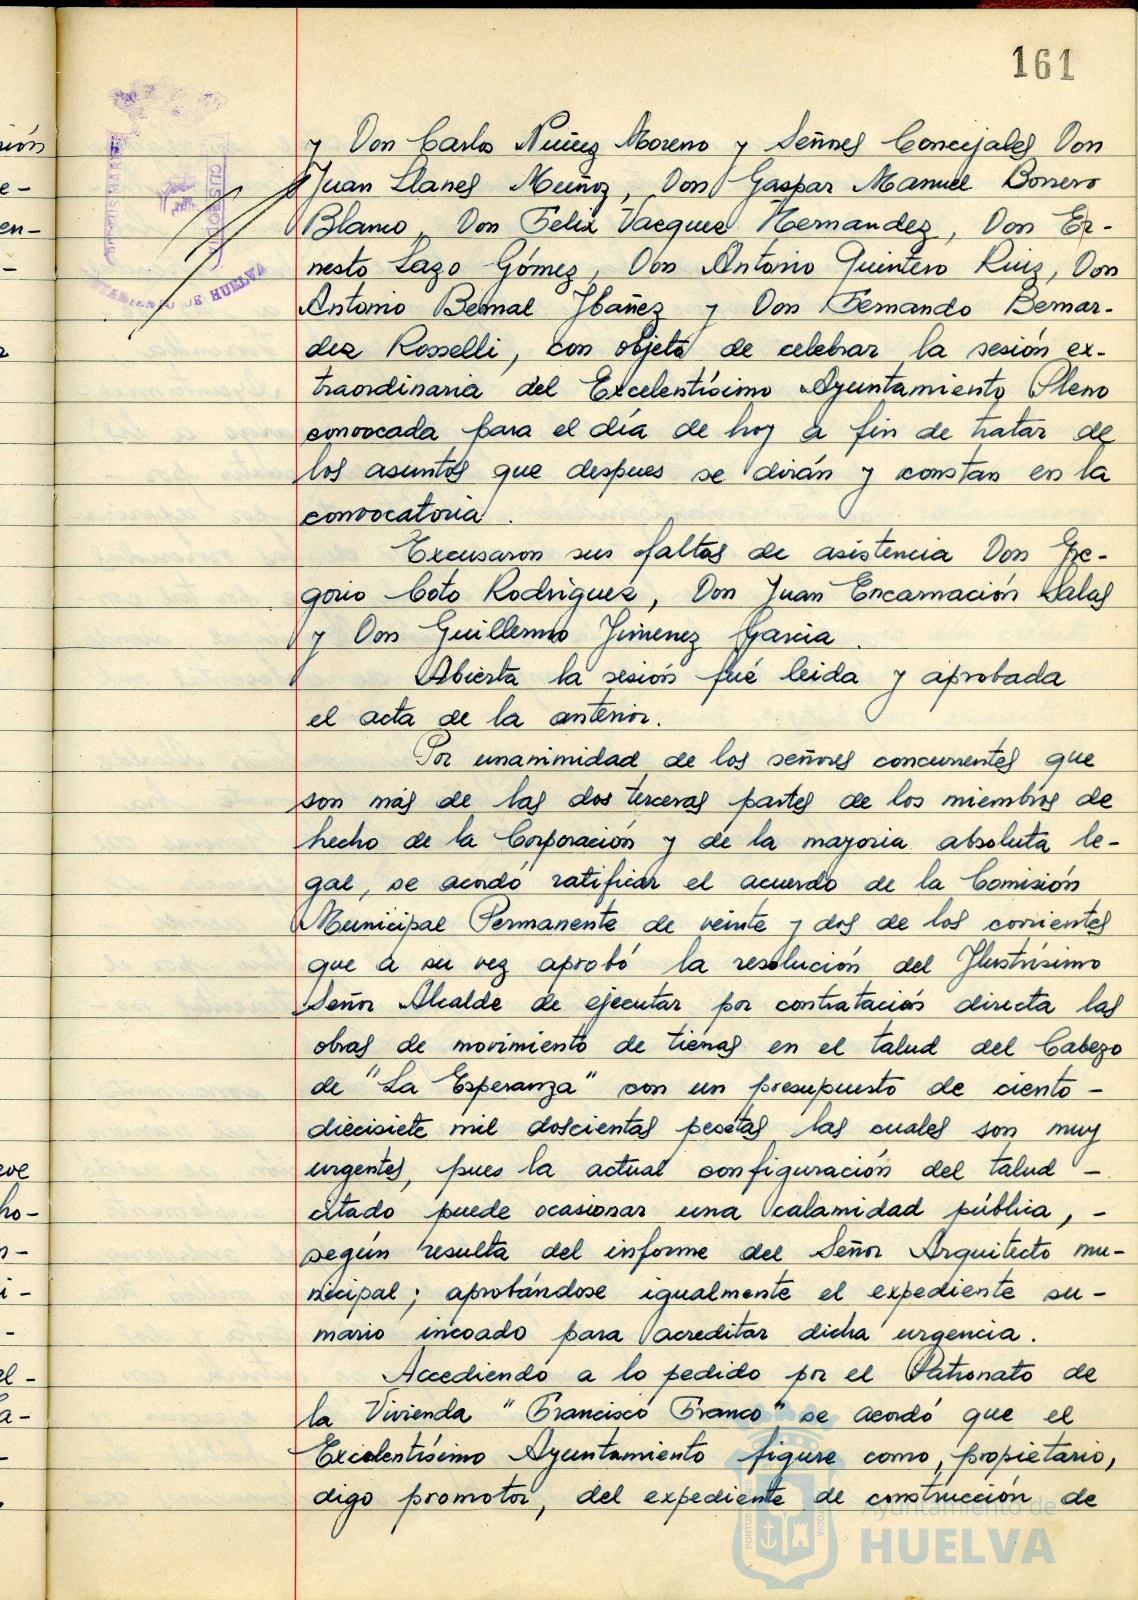 161
y Don Carlos Nuñez Moreno y Señores Concejales Don
Juan Llanes Muñoz, Don Gaspar Manuel Borrero
Blanco, Don Felix Vacquez Hernandez, Don Er-
nesto Lazo Gómez, Don Antonio Quintero Ruiz, Don
Antonio Bernal Ibañez y Don Fernando Bernar-
dez Rosselli, con objeto de celebrar la sesión ex-
traordinaria del Excelentísimo Ayuntamiento Pleno
convocada para el día de hoy a fin de tratar de
los asuntos que despues se dirán y constan en la
convocatoria.
Excusaron sus faltas de asistencia Don Gre-
gorio Coto Rodriguez, Don Juan Encarnación Salas
y Don Guillermo Jimenez Garcia.
Abierta la sesión fué leida y aprobada
el acta de la anterior.
Por unanimidad de los señores concurrentes que
son más de las dos terceras partes de los miembros de
hecho de la Corporación y de la mayoria absoluta le-
gal, se acordó ratificar el acuerdo de la Comisión
Municipal Permanente de veinte y dos de los corrientes
que a su vez aprobó la resolución del Ilustrísimo
Señor Alcalde de ejecutar por contratación directa las
obras de movimiento de tierras en el talud del Cabezo
de "La Esperanza" con un presupuesto de ciento -
diecisiete mil doscientas pesetas las cuales son muy
urgentes, pues la actual configuración del talud -
citado puede ocasionar una calamidad pública, -
según resulta del informe del Señor Arquitecto mu-
nicipal; aprobándose igualmente el expediente su-
mario incoado para acreditar dicha urgencia.
Accediendo a lo pedido por el Patronato de
la Vivienda "Francisco Franco" se acordó que el
Excelentísimo Ayuntamiento figure como, propietario,
digo promotor, del expediente de construcción de
Ayuntamiento de
HUELVA